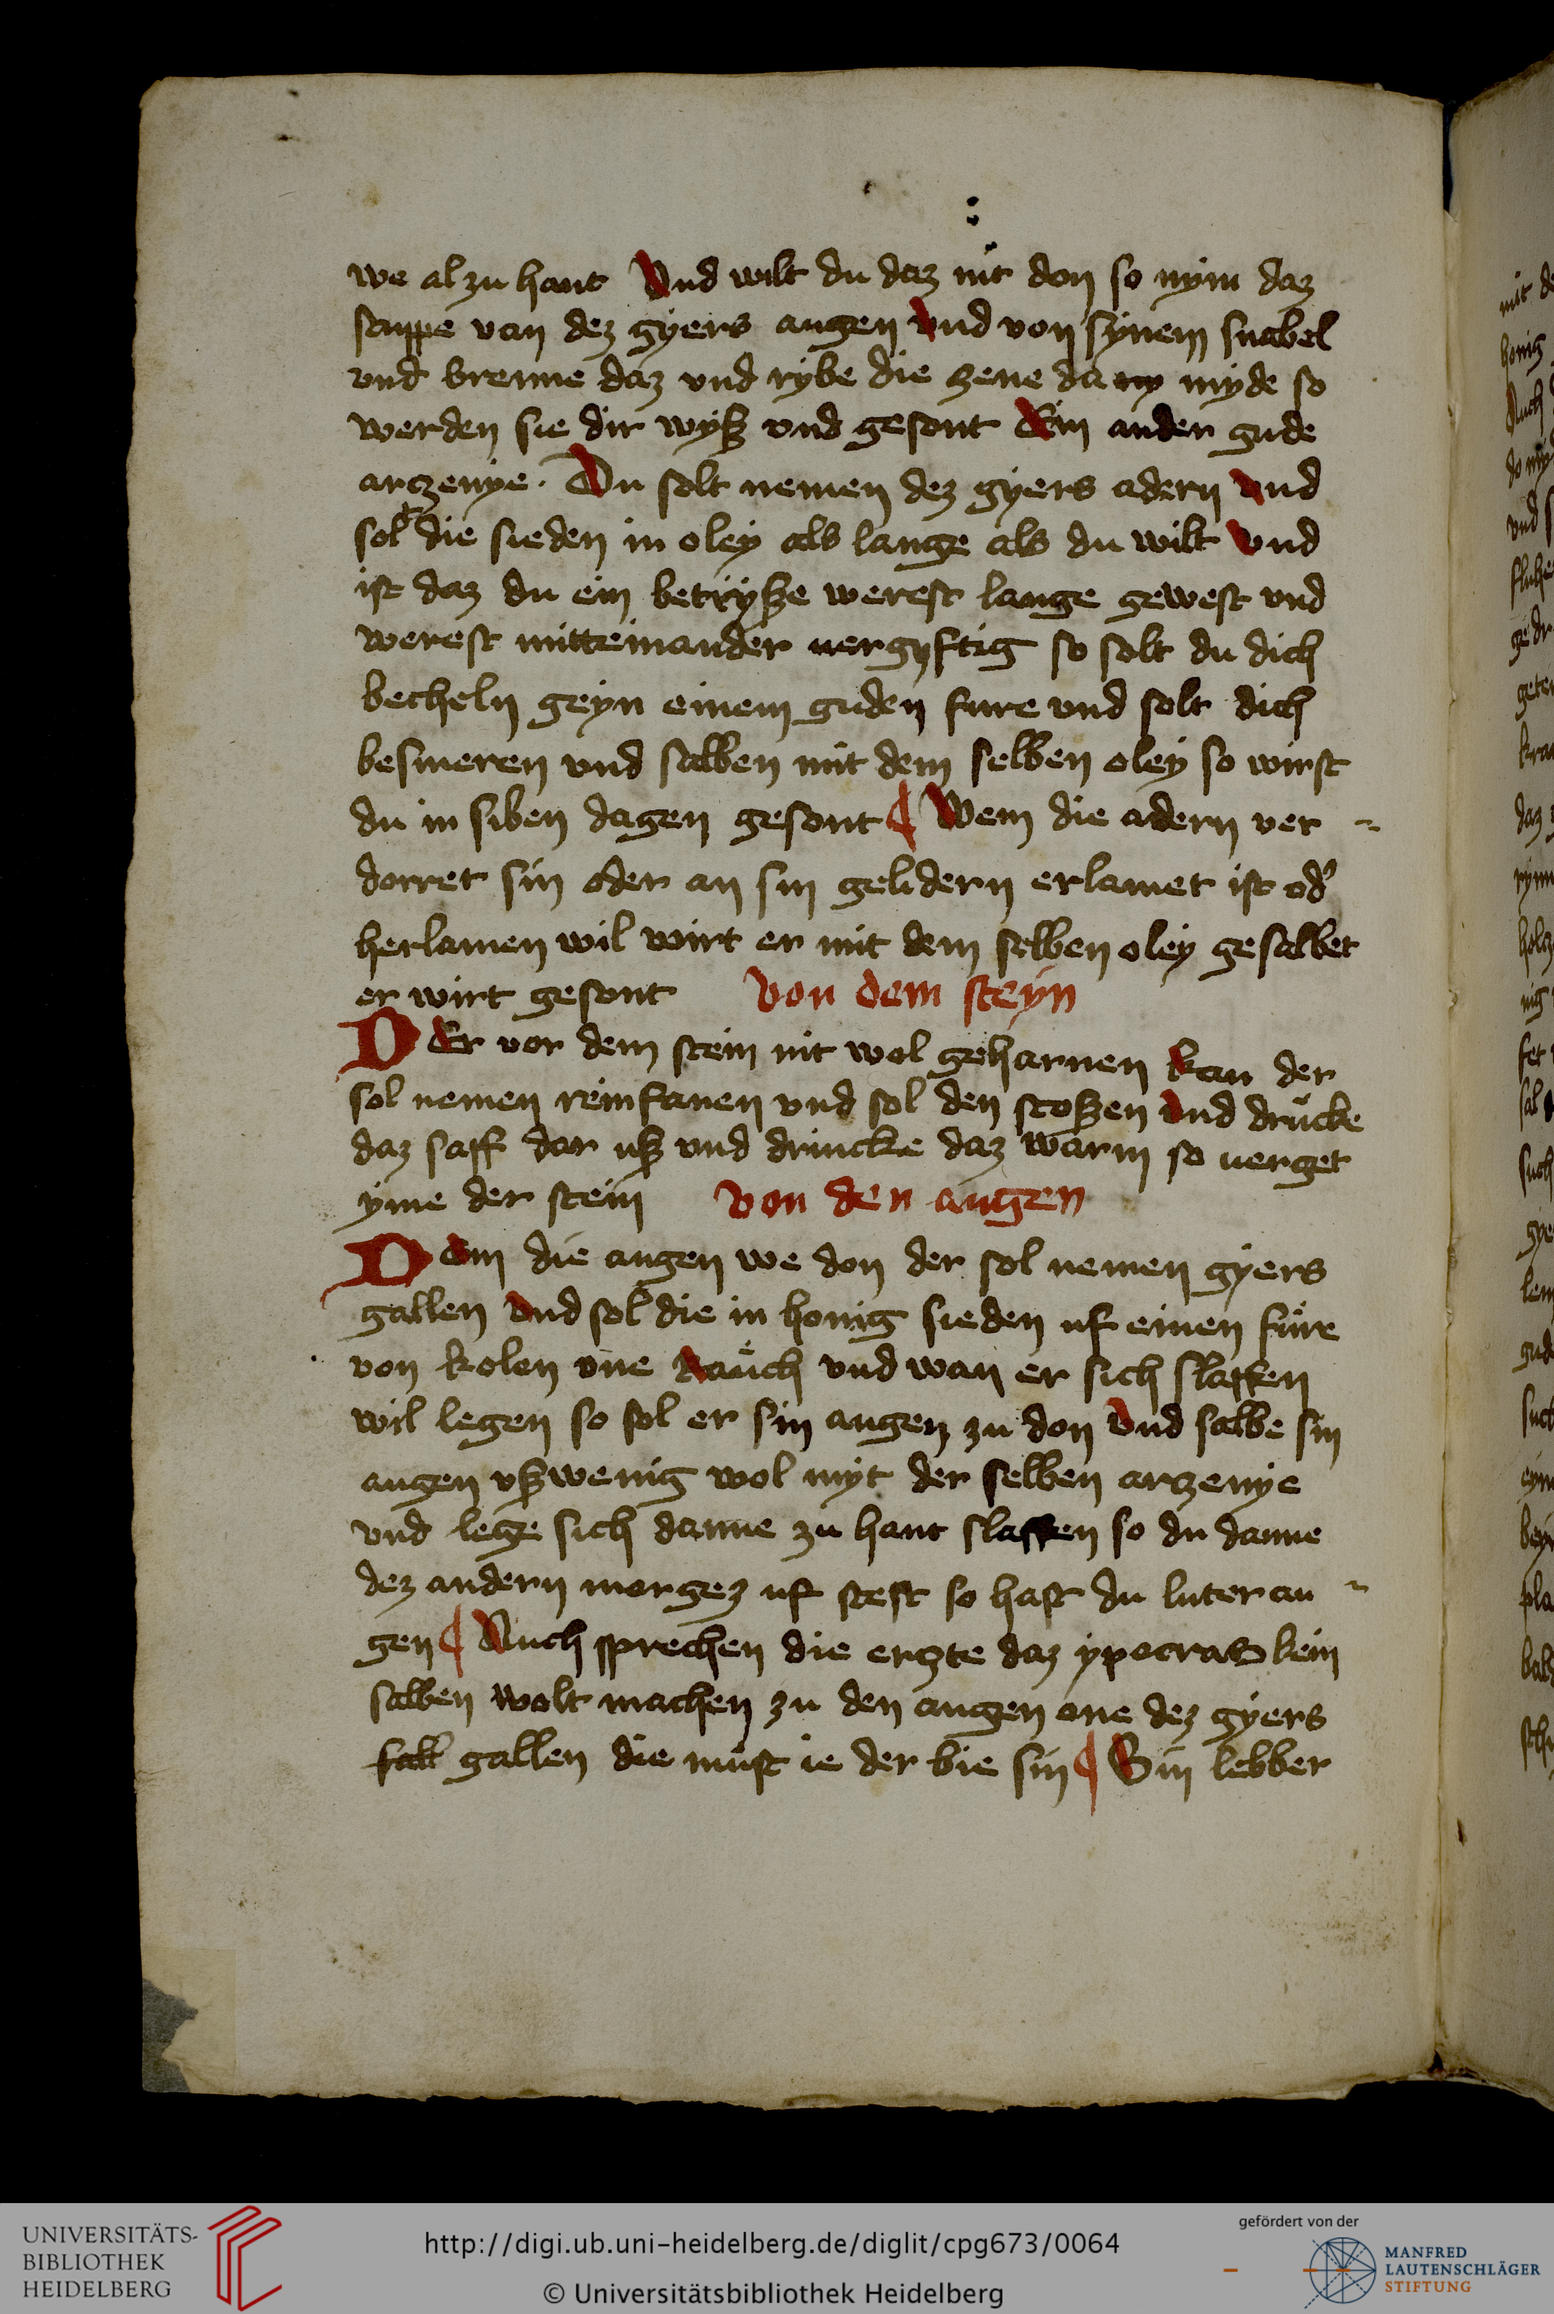 we al zu hant Vnd wilt du daz nit don so nym daz
sappe van dez gyers augen vnd von synem snabel
vnd brenne daz vnd rybe die zene da myde so
werden sie dir wyß vnd gesont Ein ander gude
arczenye. Du solt nemen dez gyers adern vnd
solt die sieden in oley als lange als du wilt vnd
ist daz du ein betryße werest lange gewest vnd
werest mitteinander uergyftig so solt du dich
becheln geyn einem guden fure vnd solt dich
besmeren vnd salben mit dem selben oley so wirst
du in siben dagen gesont ¶ Wem die adern ver
dorret sin oder an sin gelidern erlamet ist od'
herlamen wil wirt er mit dem selben oley gesalbet
er wirt gesont Von dem steyn
DEr vor dem stein nit wol geharnen kan der
sol nemen reinfanen vnd sol den stoßen vnd drucke
daz saff dar uß vnd drincke daz warm so uerget
yme der stein Von den augen
Dem die augen we don der sol nemen gyers
gallen vnd sol die in honig sieden uf einen fure
von kolen one Rauch vnd wan er sich slaffen
wil legen so sol er sin augen zu don vnd salbe sin
augen vßwenig wol myt der selben arzenye
vnd lege sich danne zu hant slaffen so du danne
dez andern morgez uf stest so hast du luter au
gen ¶ Auch sprechen die erzte daz ypocras kein
salben wolt machen zu den augen one dez gyers
salb gallen die must ie der bie sin ¶ Sin lebber
UNIVERSITÄTS-
BIBLIOTHEK
HEIDELBERG
http://digi.ub.uni-heidelberg.de/diglit/cpg673/0064
© Universitätsbibliothek Heidelberg
gefördert von der
MANFRED
LAUTENSCHLÄGER
STIFTUNG